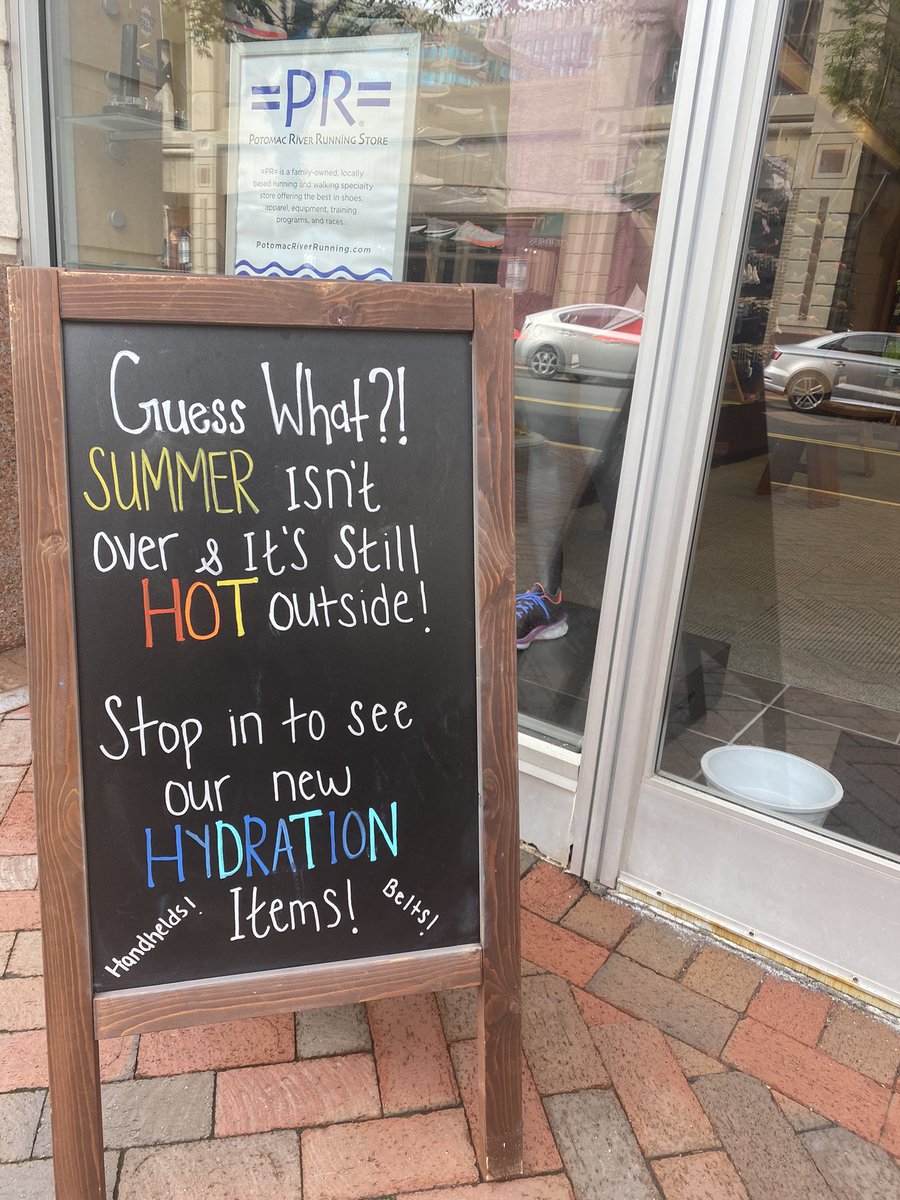 =PR=®
POTOMAC RIVER RUNNING STORE
=PR= is a family-owned, locally
based running and walking specialty
store offering the best in shoes,
apparel, equipment, training
programs, and races.
PotomacRiverRunning.com
Guess What?!
SUMMER Isn't
over & It's Still
HOT outside!
Stop in to see
our new
HYDRATION
Items!
Handhelds!
Belts!